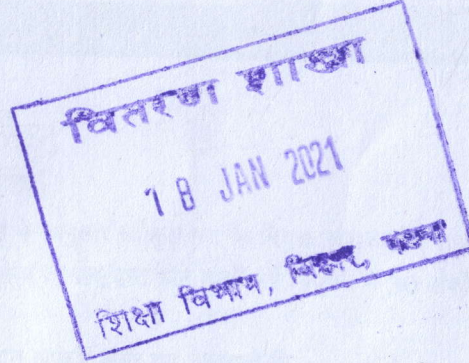 वितरण शाखा
18 JAN 2021
शिक्षा विभाग, बिहार, पटना